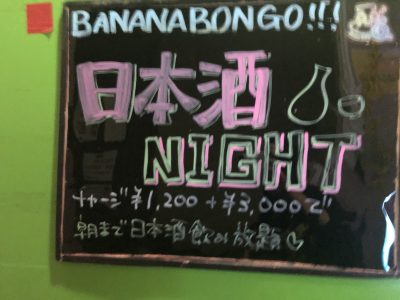 BANANABONGO!!!
日本酒
NIGHT
チャージ¥1,200+¥3,000で
朝まで日本酒飲み放題